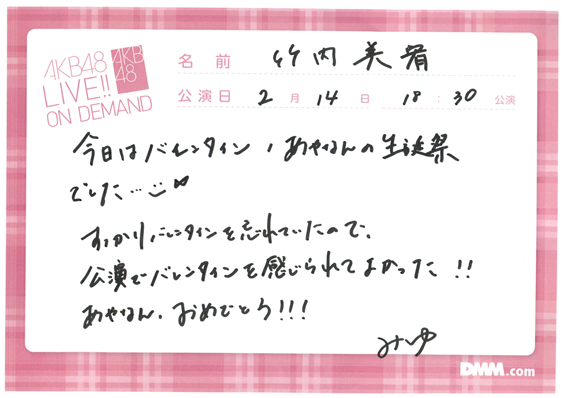 AKB48
LIVE!!
ON DEMAND
AKB
48
名前 竹内美宥
公演日 2月14日 18:30公演
今日はバレンタイン、あやなんの生誕祭
でした…
すっかりバレンタインを忘れていたので、
公演でバレンタインを感じられてよかった!!
あやなん、おめでとう!!!
みゆ
DMM.com